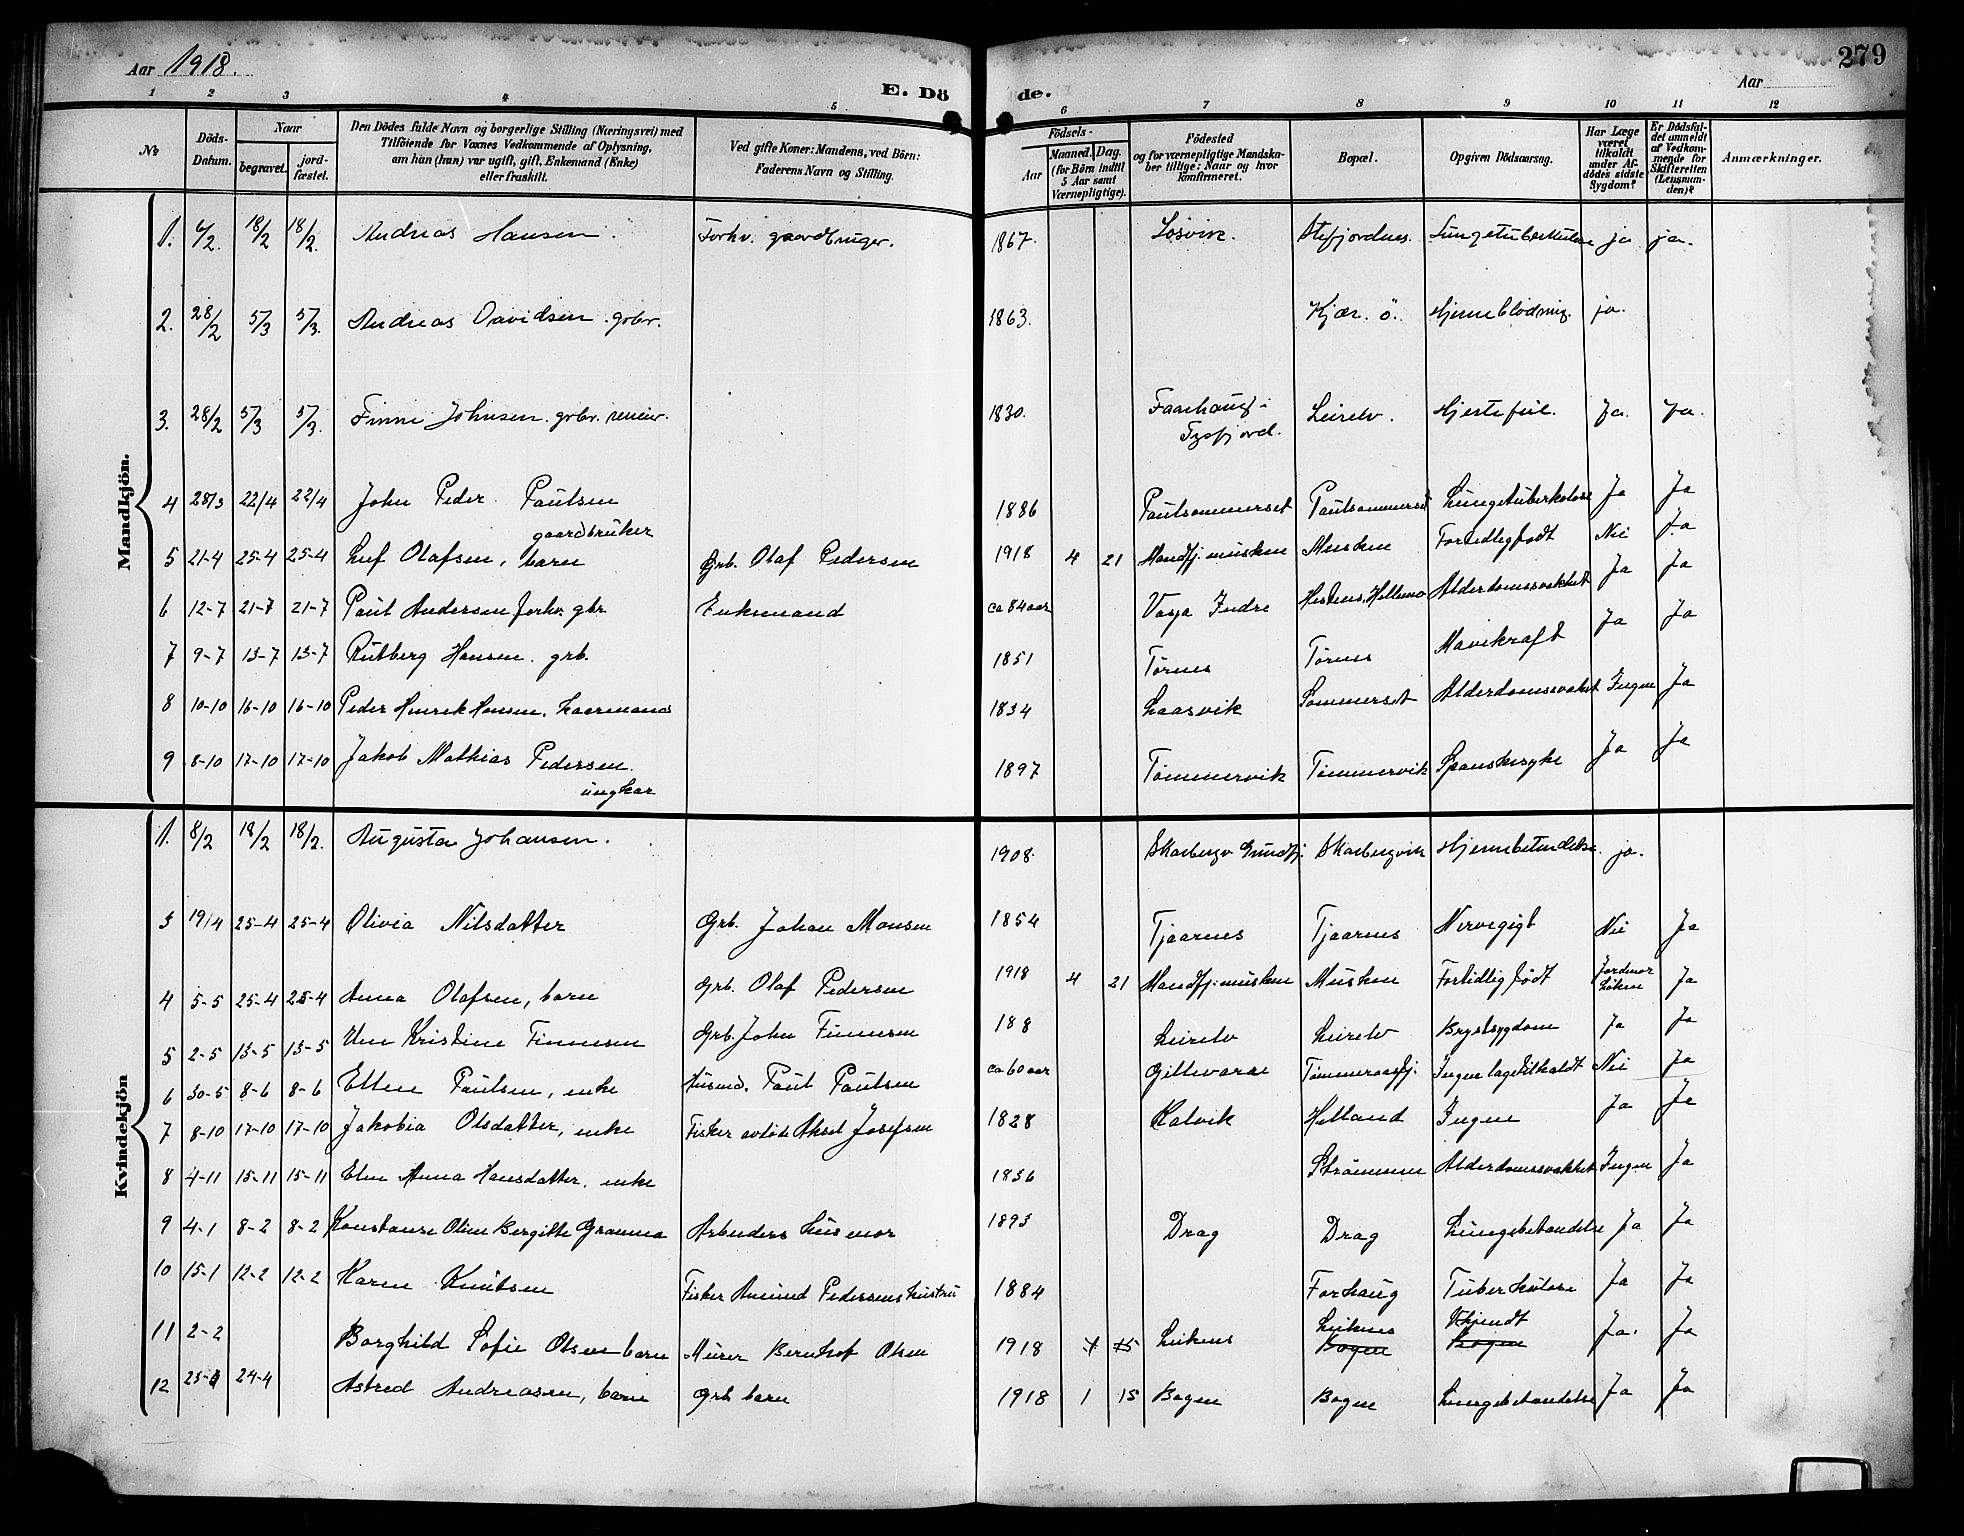 Aar 1918.
E. Dö de.
Aar
279
1 2 3 4 5 6 7 8 9 10 11 12
№
Döds-Datum.
Naar
begravet.
jord-fæstet.
Den Dödes fulde Navn og borgerlige Stilling (Næringsvei) med
Tilföiende for Voxnes Vedkommende af Oplysning,
om hun (han) var ugift, gift, Enkemand (Enke)
eller fraskilt.
Ved gifte Koner: Mandens, ved Börn:
Faderens Navn og Stilling.
Födsels-
Aar
Maaned. Dag.
(for Börn indtil
5 Aar samt
Værnepligtige).
Födested
og for værnepligtige Mandska-
ber tillige: Naar og hvor
konfirmeret.
Bopæl.
Opgiven Dödsaarsag.
Har Læge
været
tilkaldt
under Af-
dödes sidste
Sygdom?
Er Dödsfal-
det anmeldt
af Vedkom-
mende for
Skifteretten
(Lensman-
den)?
Anmærkninger.
Mandkjön.
1. 6/2 18/2 18/2. Andreas Hansen. Forhv. gaardbruger. 1867. Losvik. Stefjordnes. Lungetuberkulose ja ja.
2. 28/2 5/3 5/3. Andreas Davidsen. grbr. 1863. Kjær. ö. Hjerneblödning. ja.
3. 28/2 5/3 5/3. Finne Johnsen. grbr. 1830. Tysfjord. Leirelv. Hjertefeil. Ja. Ja.
4 28/3 22/4 22/4 John Peder Paulsen
gaardbruker 1886 Paulsommerset Paulsommerset Lungetuberkulose Ja Ja
5 21-4 25-4 25-4 Leif Olafsen, barn Grb. Olaf Pedersen 1918 4 21 Mandfj. musken Musken Fortidligfødt Nei Ja
6 12-7 21-7 21-7 Paul Andersen forhv. gbr Enkemand ca 84 aar Vasja Indre Hellemo Alderdomssvakhet Ja Ja
7 9-7 13-7 13-7 Rutberg Hansen. grb. 1851 Tørnes Tørnes Mavekraft Ja Ja
8 10-10 16-10 16-10 Peder Henrik Hansen. 1834 Laasvik Sommerset Alderdomssvakhet Ingen Ja
9 8-10 17-10 17-10 Jakob Mathias Pedersen.
ungkar 1897 Tømmervik Tømmervik Spanskesyke Ja Ja
Kvindekjön
1. 8/2 18/2 18/2. Augusta Johansen. 1908. Skarbergv Grundfj. Skarbergvik Hjernebetendelse. ja.
3 19/4 25-4 25-4 Olivia Nilsdatter Grb. Johan Monsen 1854 Tjaarnes Tjaarnes Nervegigt Nei Ja
4 5-5 25-4 25-4 Anna Olafsen, barn Grb. Olaf Pedersen 1918 4 21 Mandfj. musken Musken Fortidlig født Jordmor Ja
5 2-5 13-5 13-5 Kristine Finnesen Grb. John Finnesen 188 Leirelv Leirelv Brystsygdom Ja Ja
6 30-5 8-6 8-6 Ellen Paulsen, enke Husmd. Paul Paulsen ca 60 aar Gillevarre Ingen læge tilkaldt Nei Ja
7 8-10 17-10 17-10 Jakobia Olsdatter, enke Fisker avdöde Aksel Josefsen 1828 Kalvik Helland Ingen Ja Ja
8 4-11 15-11 15-11 Elen Anna Hansdatter, enke 1836 Strømmen Alderdomssvakhet Ingen Ja
9 4-1 8-2 8-2 Konstanse Oline Bergitte Gramma Arbeiders husmor 1893 Drag Drag Lungebetændelse Ja Ja
10 15-1 12-2 12-2 Karen Knutsen Fisker Amund Pedersens hustru 1884 Forhaug Tuberkulose Ja Ja
11 2-2 Borghild Sofie Olsen barn Murer Bernhof Olsen 1918 1 15 Leiknes Leiknes Bogen Ukjendt Bogen Ja. Ja
12 25-4 24-4 Astrid Andreasen, barn Grb barn 1918 1 15 Bogen Bogen Lungebetændelse Ja Ja